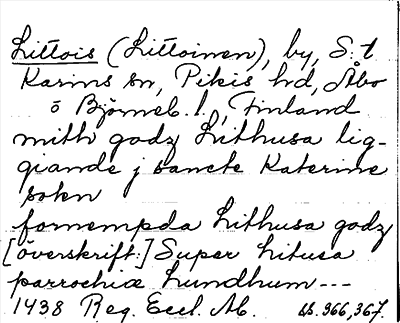 Littois (Littoinen), by, S:t
Karins sn, Pikis hd, Åbo
o Björneb. l., Finland
mith godz Lithusa lig-
giande j sancte Katerine
sokn
fornempda Lithusa godz
[överskrift:] Super Litusa
parrochia Lundhum ---
1438 Reg. Eccl. Ab. ss. 366, 367.